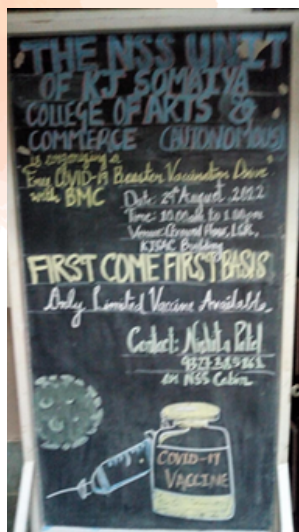 THE NSS UNIT
OF KJ SOMAIYA
COLLEGE OF ARTS &
COMMERCE (AUTONOMOUS)
is organizing a
"Free COVID-19 Booster Vaccination Drive"
with BMC
Date: August 2022
Time: 10.00am to 1.00pm
Venue: Ground Floor,
KJSAC Building
FIRST COME FIRST BASIS
Only Limited Vaccine Available
Contact:
or NSS Cabin
COVID-19
VACCINE